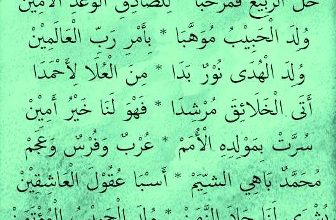 حَلَّ الرَّبِيعُ فَمَرْحَبًا * لِلصَّادِقِ الْوَعْدِ الْأَمِيْنْ
وُلِدَ الْحَبِيْبُ مُوَهَّبَا * بِأَمْرِ رَبِّ الْعَالَمِيْنْ
وُلِدَ الْهُدَى نُوْرٌ بَدَا * مِنَ الْعُلَا لِأَحْمَدَا
أَتَى الْخَلَائِقَ مُرْشِدَا * فَهْوَ لَنَا خَيْرُ أَمِيْنْ
سُرَّتْ بِمَوْلِدِهِ الْأُمَمْ * عُرْبٌ وَفُرْسٌ وَعَجَمْ
مُحَمَّدٌ بَاهِي الشِّيَمْ * أَسْبَا عُقُوْلَ الْعَاشِقِيْنْ